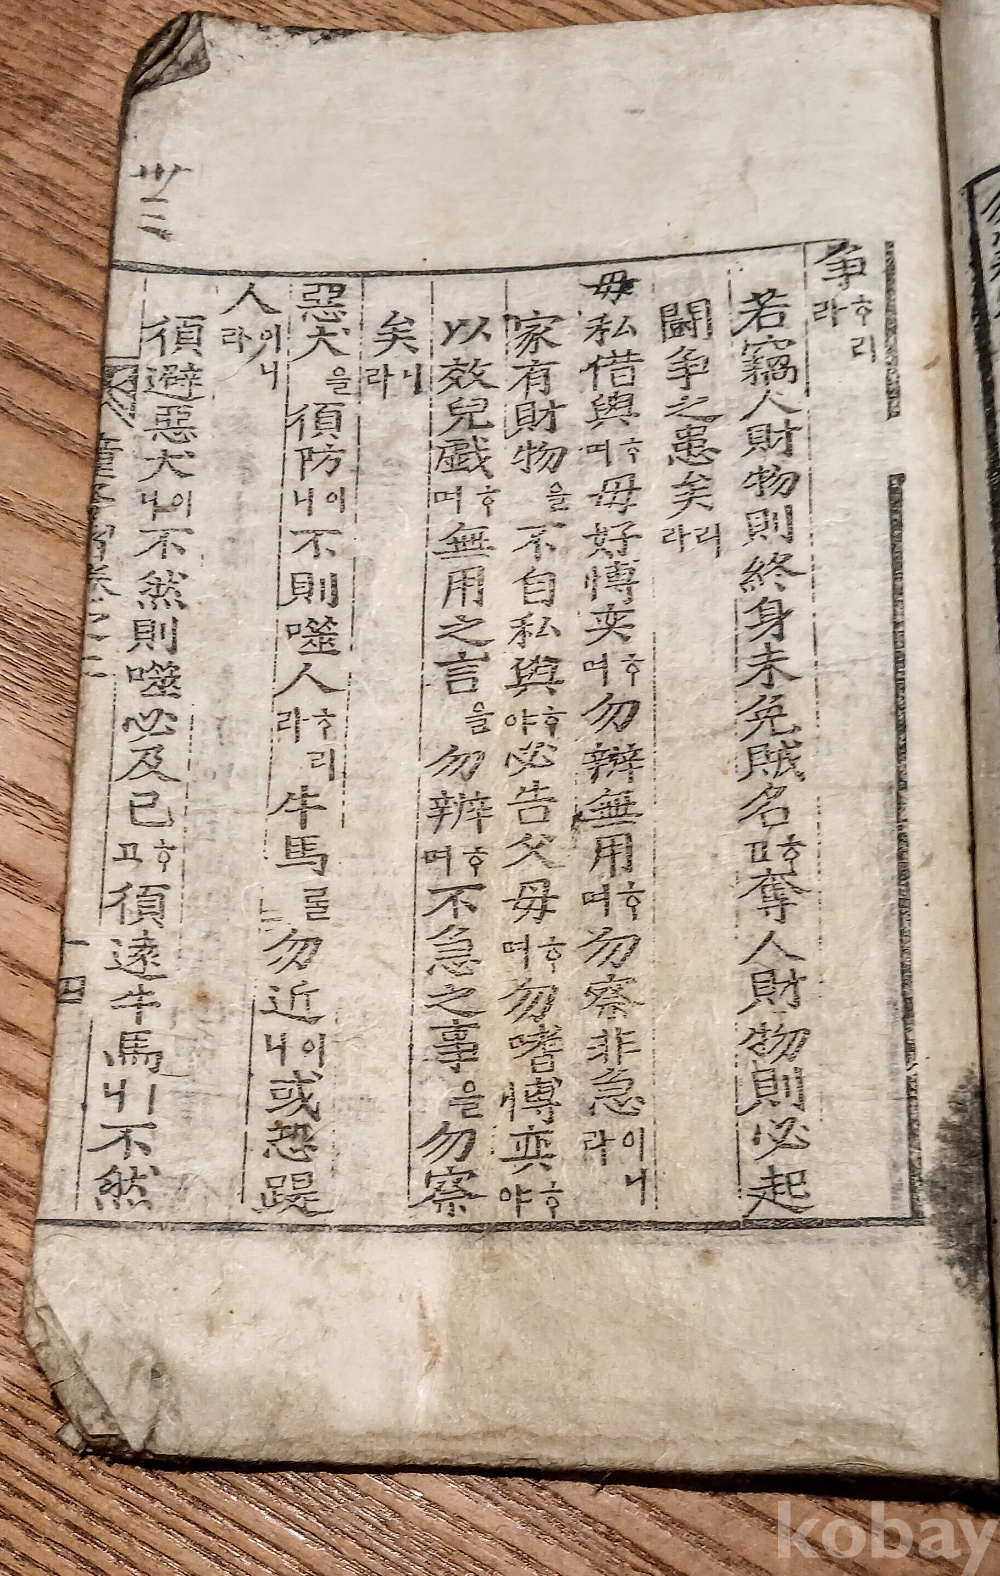 爭ᄒᆞ리라
若竊人財物則終身未免賊名ᄒᆞ고奪人財物則必起
鬪爭之患矣리라
毋私借與ᄒᆞ며毋好博奕ᄒᆞ며勿辯無用ᄒᆞ며勿察非急이니라
家有財物을不自私與ᄒᆞ야必告父母ᄒᆞ며勿嗜博奕ᄒᆞ야
以效兒戱ᄒᆞ며無用之言을勿辨ᄒᆞ며不急之事을勿察
矣니라
惡犬을須防이니不則噬人ᄒᆞ리라牛馬를勿近이니或恐踶
人이니라
須避惡犬이니不然則噬必及己ᄒᆞ고須遠牛馬니不然
卷之二
十四
卅三
kobay